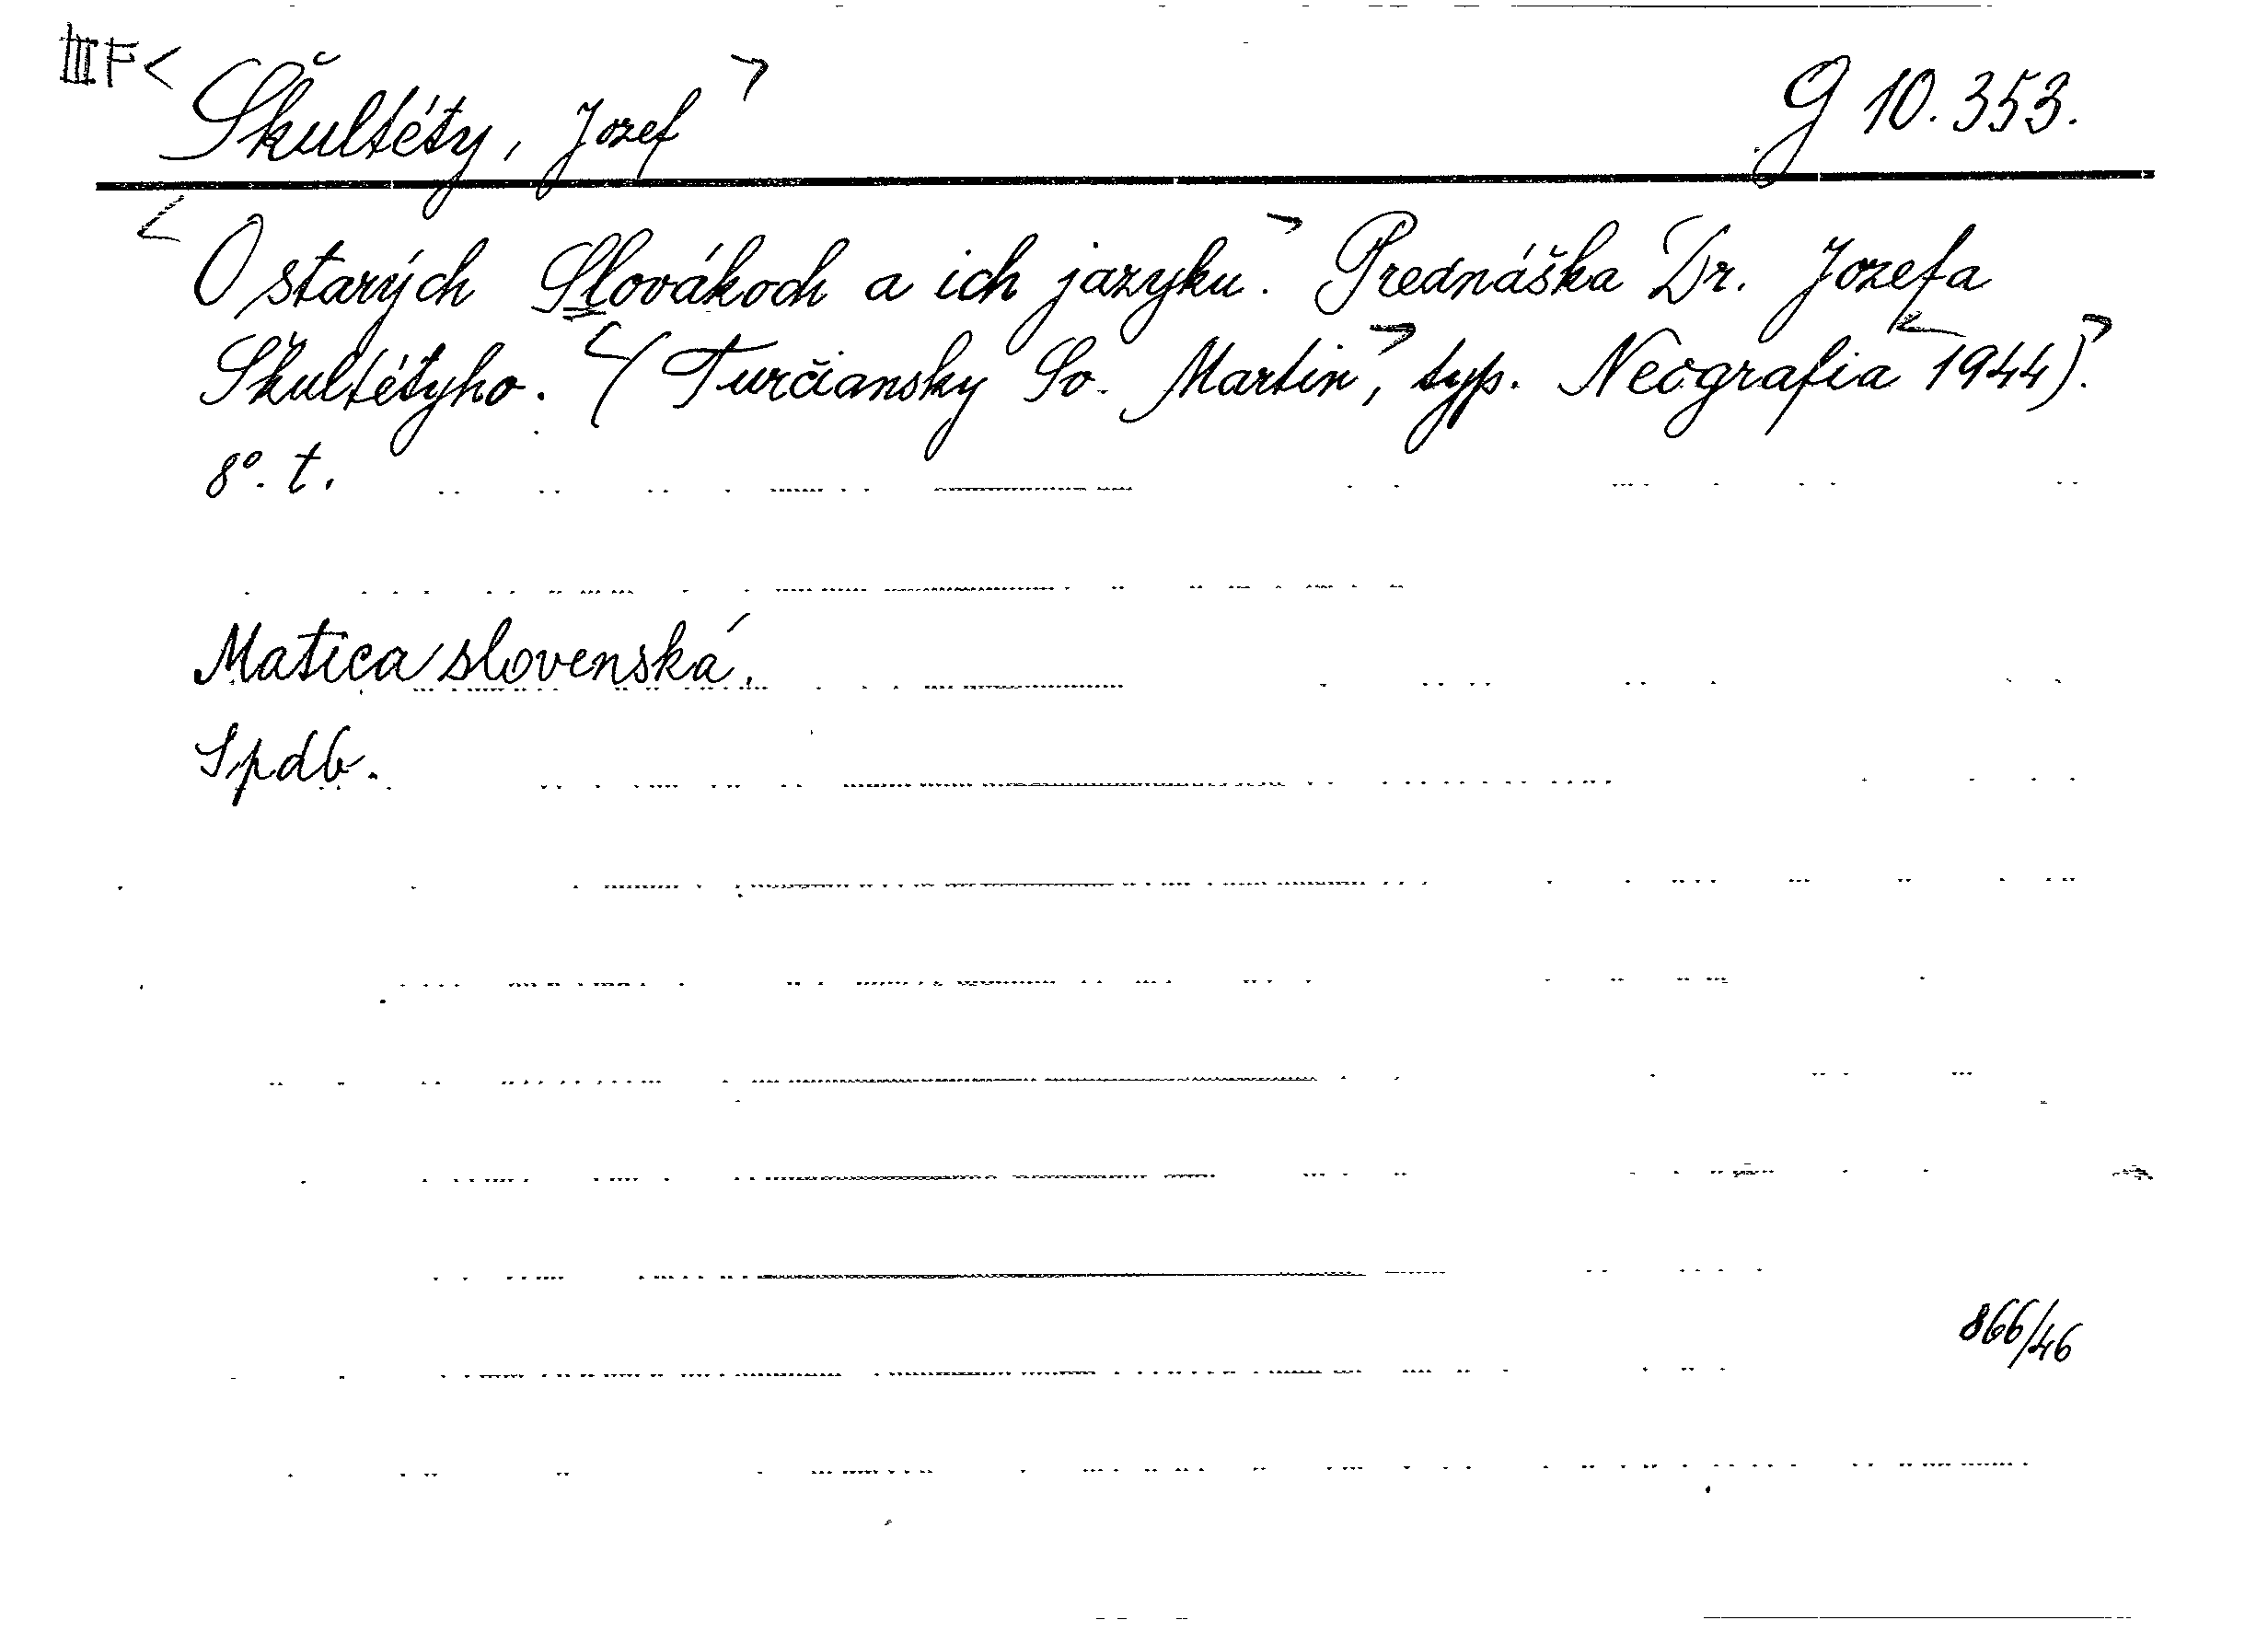 III F < Škultéty, Jozef > G 10.353.
< O starých Slovákoch a ich jazyku. > Prednáška Dr. Jozefa
Škultétyho. < (Turčiansky Sv. Martin >, typ. Neografia < 1944). >
8°. t.
Matica slovenská.
Spdb.
866/46